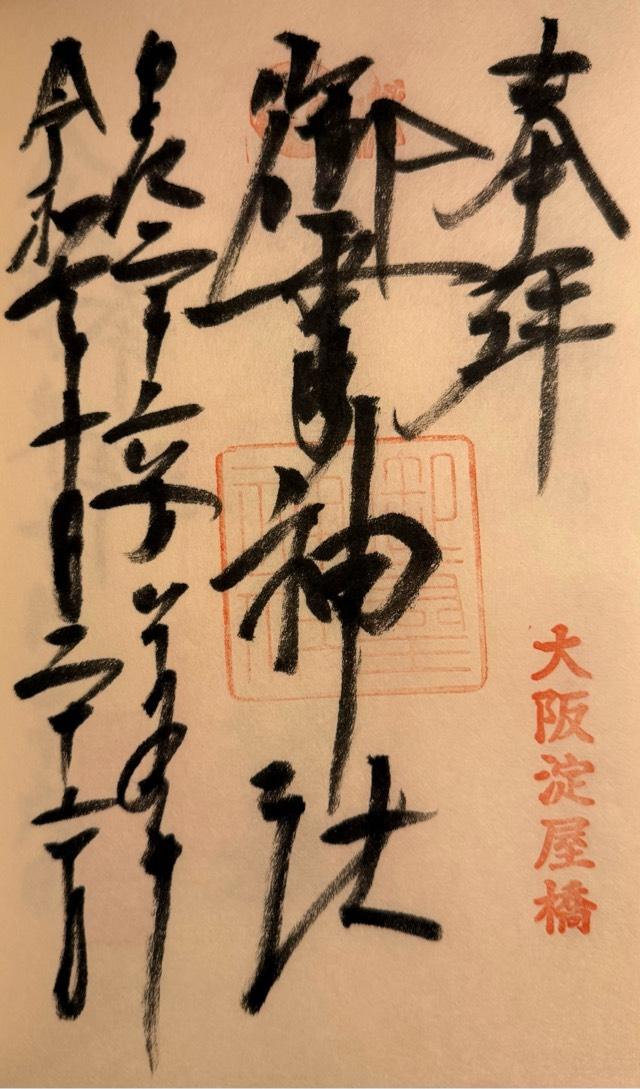 奉拝
大阪淀屋橋
御霊神社
御霊神社
皇紀二千六百八十五年
令和七年十月二十日